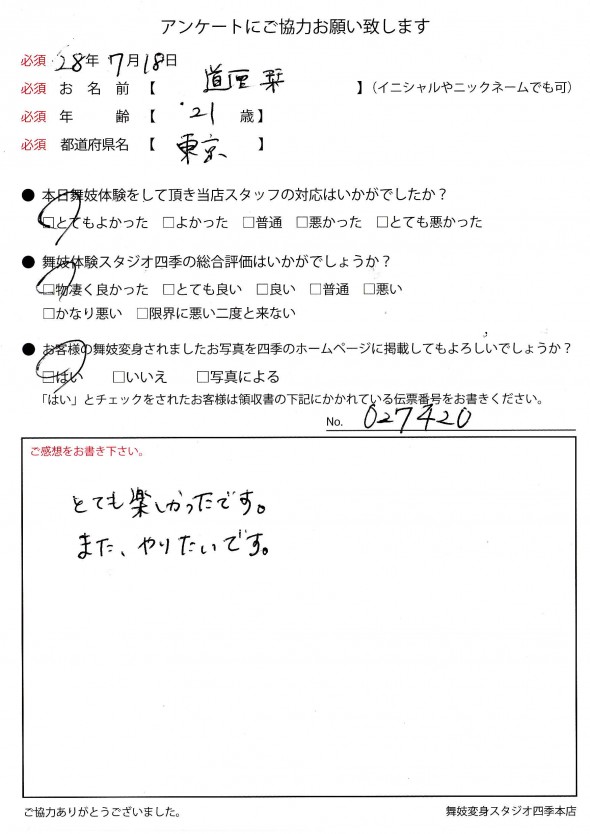 アンケートにご協力お願い致します
必須 28年 7月18日
必須 お名前【 道里 栞 】(イニシャルやニックネームでも可)
必須 年齢【 21 歳】
必須 都道府県名【 東京 】
● 本日舞妓体験をして頂き当店スタッフの対応はいかがでしたか?
□とてもよかった □よかった □普通 □悪かった □とても悪かった
● 舞妓体験スタジオ四季の総合評価はいかがでしょうか?
□物凄く良かった □とても良い □良い □普通 □悪い
□かなり悪い □限界に悪い二度と来ない
● お客様の舞妓変身されましたお写真を四季のホームページに掲載してもよろしいでしょうか?
□はい □いいえ □写真による
「はい」とチェックをされたお客様は領収書の下記にかかれている伝票番号をお書きください。
No. 027420
ご感想をお書き下さい。
とても楽しかったです。
また、やりたいです。
ご協力ありがとうございました。 舞妓変身スタジオ四季本店